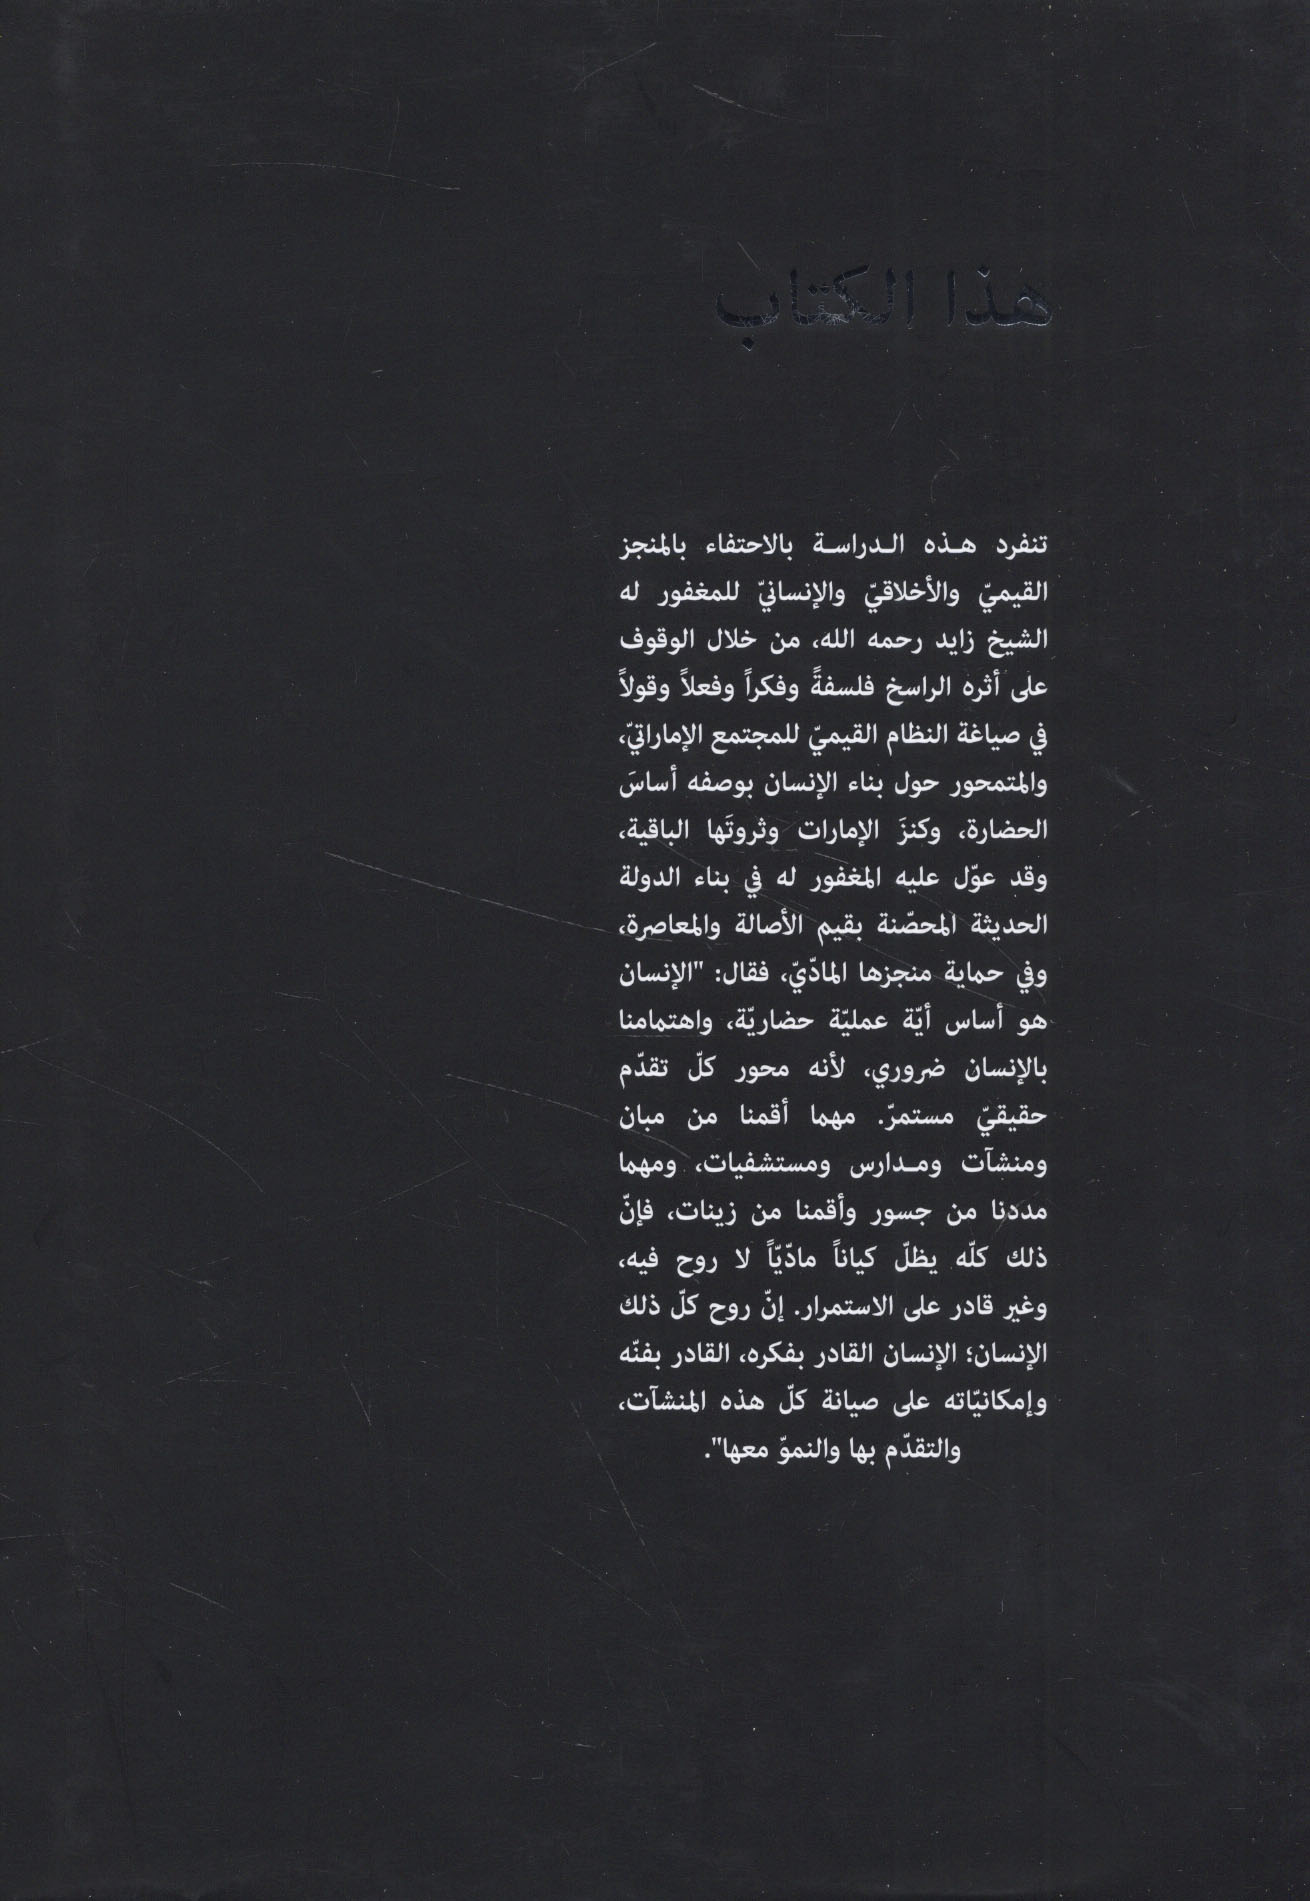 هذا الكتاب
تنفرد هـذه الـدراسـة بالاحتفاء بالمنجز
القيميّ والأخلاقيّ والإنسانيّ للمغفور له
الشيخ زايد رحمه الله، من خلال الوقوف
على أثره الراسخ فلسفةً وفكراً وفعلاً وقولاً
في صياغة النظام القيميّ للمجتمع الإماراتيّ،
والمتمحور حول بناء الإنسان بوصفه أساسَ
الحضارة، وكنزَ الإمارات وثروتَها الباقية،
وقد عوّل عليه المغفور له في بناء الدولة
الحديثة المحصّنة بقيم الأصالة والمعاصرة،
وفي حماية منجزها المادّيّ، فقال: "الإنسان
هو أساس أيّة عمليّة حضاريّة، واهتمامنا
بالإنسان ضروري، لأنه محور كلّ تقدّم
حقيقيّ مستمرّ. مهما أقمنا من مبان
ومنشآت ومـدارس ومستشفيات، ومهما
مددنا من جسور وأقمنا من زينات، فإنّ
ذلك كلّه يظلّ كياناً مادّيّاً لا روح فيه،
وغير قادر على الاستمرار. إنّ روح كلّ ذلك
الإنسان؛ الإنسان القادر بفكره، القادر بفنّه
وإمكانيّاته على صيانة كلّ هذه المنشآت،
والتقدّم بها والنموّ معها".